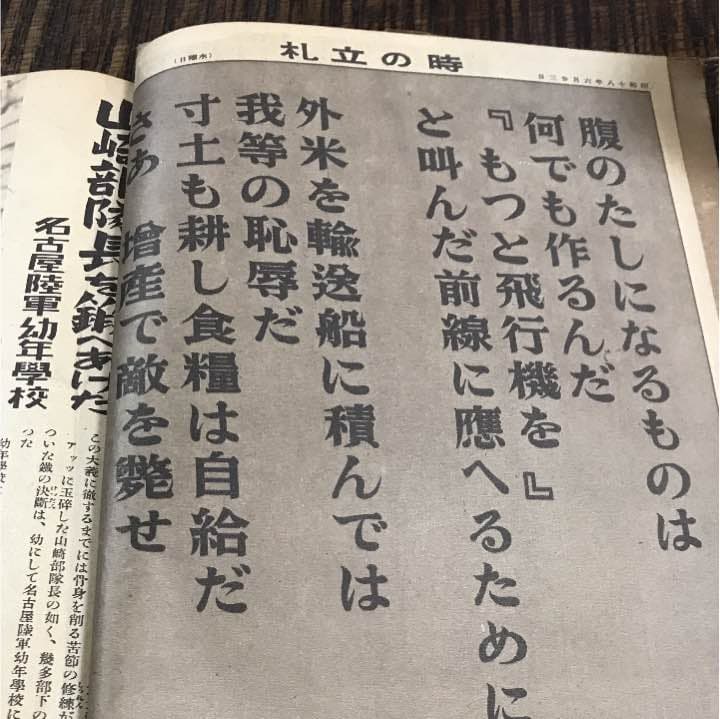 時の立札
昭和十八年六月廿三日
(水曜日)
腹のたしになるものは
何でも作るんだ
『もつと飛行機を』
と叫んだ前線に應へるために
外米を輸送船に積んでは
我等の恥辱だ
寸土も耕し食糧は自給だ
さあ 增産で敵を斃せ
山崎部隊長を鍛へあげた
名古屋陸軍幼年學校
この大義に徹するまでには骨身を削る苦節の修練が
アッツに玉碎した山崎部隊長の如く、幾多部下の
ついた鐵の決斷は、幼にして名古屋陸軍幼年學校に
った
幼年學校